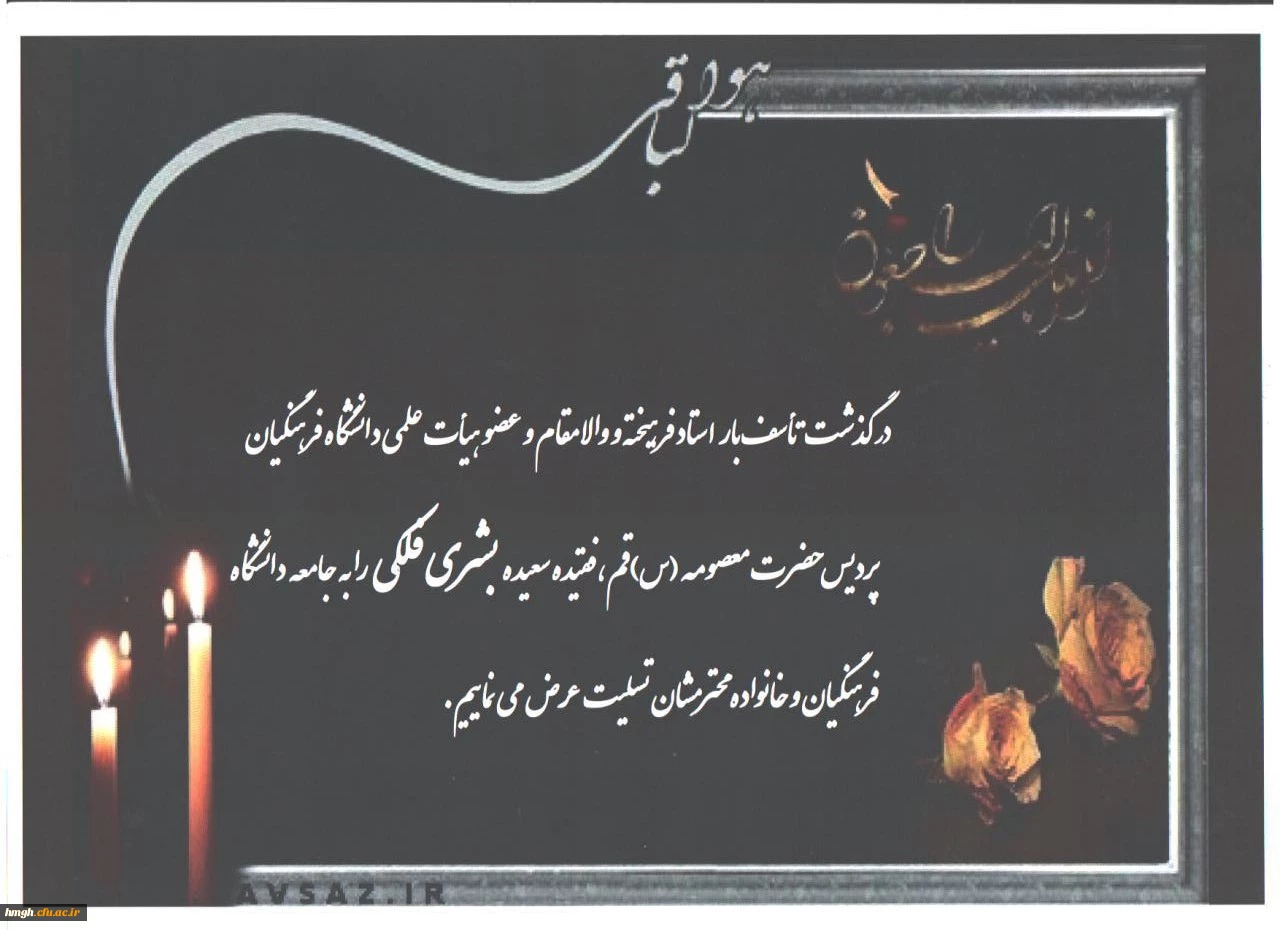 هو الباقی
انا لله و انا الیه راجعون
درگذشت تأسف بار استاد فرهیخته و والامقام و عضو هیأت علمی دانشگاه فرهنگیان
پردیس حضرت معصومه (س) قم، فقیده سعیده بشری فلکی را به جامعه دانشگاه
فرهنگیان و خانواده محترمشان تسلیت عرض می نماییم.
AVSAZ.IR
hmgh.cfu.ac.ir